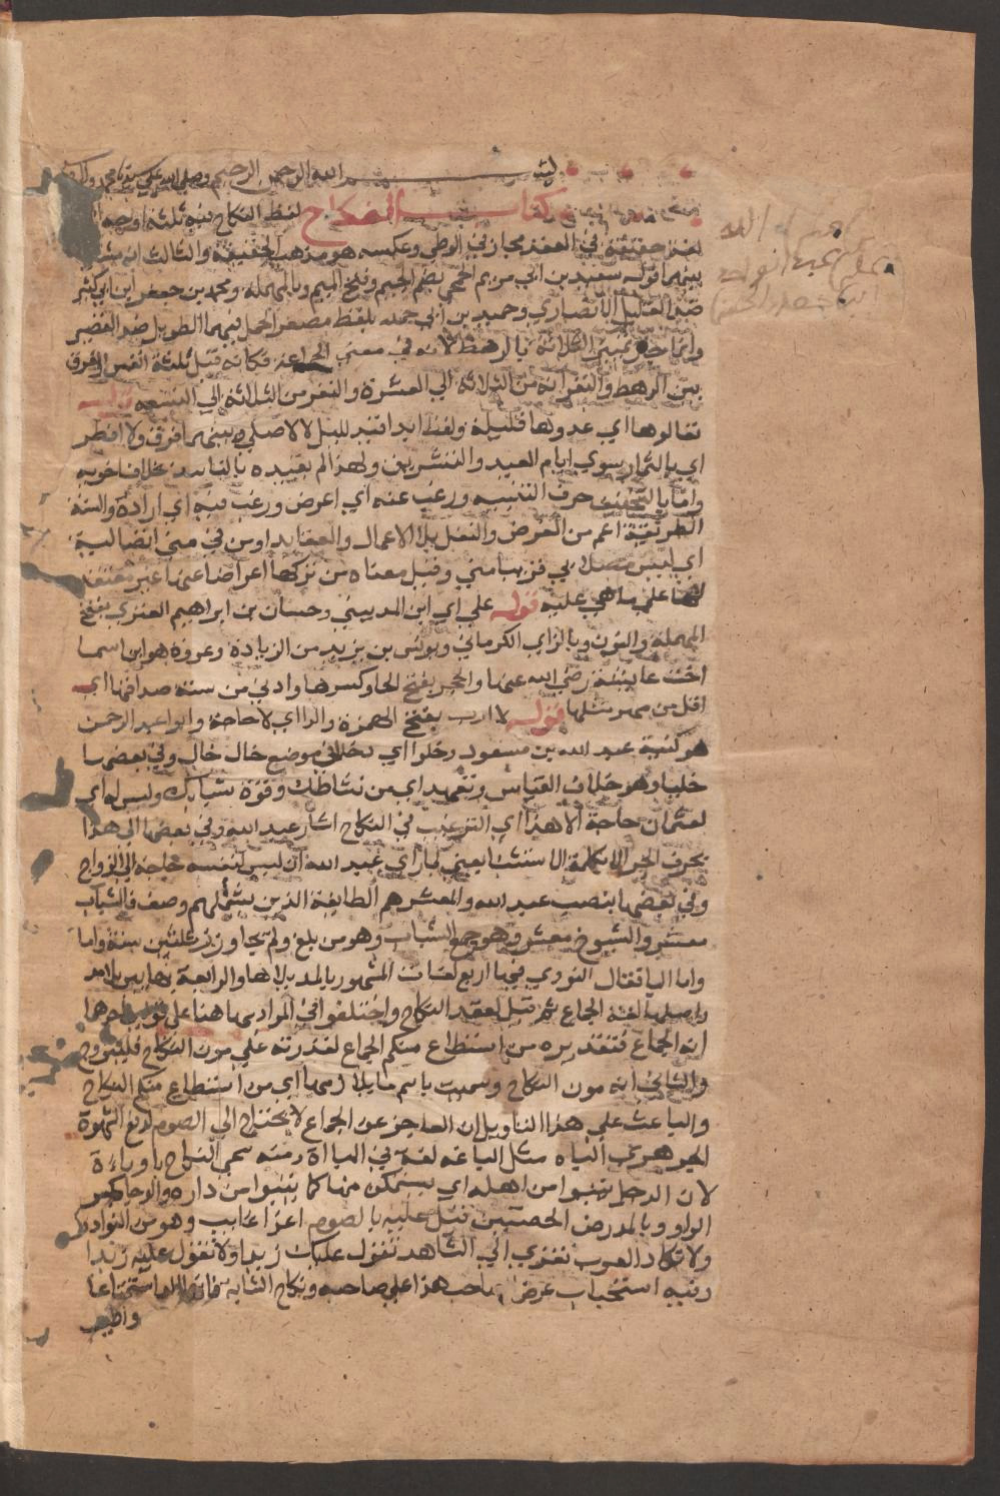 بسم الله الرحمن الرحيم وصلى الله على سيدنا محمد واله
كتاب النكاح لفظ النكاح فيه ثلثة اوجه
لغة حقيقة في العقد مجاز في الوطي وعكسه هو مذهب الحنفية والثالث انه مشترك
بينهما قوله سعيد بن ابي مريم الجمحي بضم الجيم وفتح الميم وبالمهملة ومحمد بن جعفر ابن ابي كثير
ضد القليل الانصاري وحميد بن ابي حميد بلفظ مصغر الحمل فيهما الطويل ضد القصير
وانما جاز تمييز الثلاثة بالرهط لانه في معني الجماعة فكانه قيل ثلثة انفس والفرق
بين الرهط والنفر انه من الثلاثة الي العشرة والنفر من الثلاثة الي التسعة قوله
تقالوها اي عدوها قليلة ولفظ ابدا قيد لليل لا لاصلي بينهم فرق ولا افطر
اي بالنهار سوي ايام العيد والتشريق ولهذا لم يقيده بالتابيد بخلاف اخويه
واما بالتخفيف حرف التنبيه ورغب عنه اي اعرض ورغب فيه اي اراده والسنة
الطريقة اعم من الفرض والنفل بل الاعمال والعقايد ومن في مني اتصالية
اي ليس متصلا بي قريبا مني وقيل معناه من تركها اعراضا عنها غير معتقد
لها علي ما هي عليه قوله علي اي ابن المديني وحسان بن ابراهيم العنزي بفتح
المهملة والنون وبالزاي الكرماني ويونس بن يزيد من الزيادة وعروة هو ابن اسما
اخت عايشة رضي الله عنها والحجر بفتح الحا وكسرها وادني من سنة صداقها اي
اقل من مهر مثلها قوله لا ارب بفتح الهمزة والرا اي لا حاجة وابو عبد الرحمن
هو كنية عبد الله بن مسعود وخلوا اي دخلا في موضع خال خال وفي بعضها
خليا وهو خلاف القياس وتعهد اي من نشاطك وقوة شبابك وليس له اي
لعثمان حاجة الا هذا اي الترغيب في النكاح اشار عبد الله وفي بعضها الي هذا
بحرف الجر لا بكلمة الاستثنا يعني لما راي عبد الله ان ليس لنفسه حاجة الي الزواج
وفي بعضها بنصب عبد الله والمعشر هم الطايفة الذين يشملهم وصف فالشباب
معشر والشيوخ معشر وهو جمع الشباب وهو من بلغ ولم يجاوز ثلثين سنة واما
واما البا فقال النووي فيها اربع لغات المشهور بالمد بلا ها والرابعة بهايين بلا مد
واصلها لغة الجماع ثم قيل لعقد النكاح واختلفوا في المراد بها هنا علي قولين اصحهما
انه الجماع فتقديره من استطاع منكم الجماع لقدرته علي مون النكاح فليتزوج
والثاني انه مون النكاح وسميت باسم ما يلازمها اي من استطاع منكم النكاح
والباعث علي هذا التاويل ان العاجز عن الجماع لا يحتاج الي الصوم لدفع الشهوة
الجوهري الباه مثل الباعة لغة في الباآة ومنه سمي النكاح با وباءة
لان الرجل يتبوا من اهله اي يستمكن منها كما يتبوا من داره والوجا بكسر
الواو وبالمد رض الخصيتين قيل عليه بالصوم اغرا غايب وهو من النوادر
ولا تكاد العرب تغري الي الشاهد تقول عليك زيدا ولا تقول عليه زيدا
وفيه استحباب عرض الصاحب هذا علي صاحبه ونكاح الشابة فانها الذ استمتاعا
واطيب